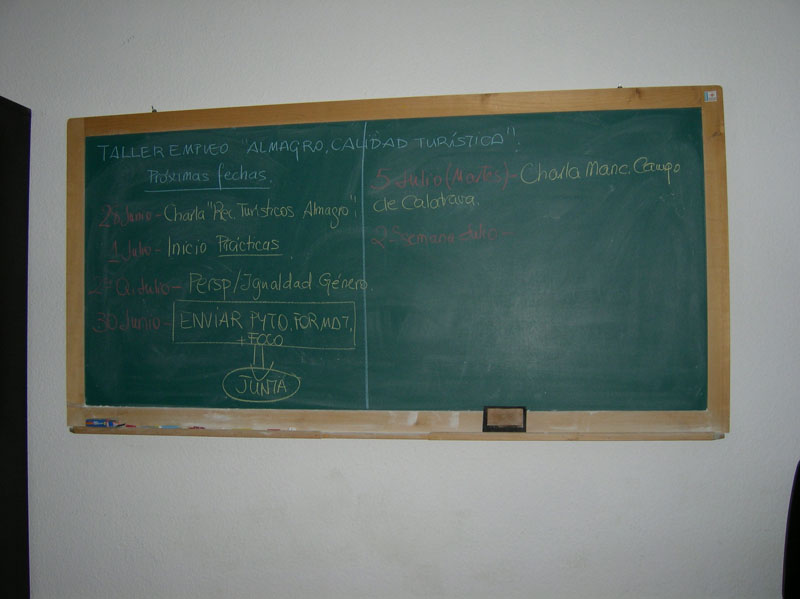 TALLER EMPLEO "ALMAGRO, CALIDAD TURÍSTICA".
Próximas fechas.
Junio - Charla "Rec. Turísticos Almagro".
1 Julio - Inicio Prácticas.
2ª Q. Julio - Persp/Igualdad Género.
30 Junio - ENVIAR PYTO. FORMAT.
+ FOCO
JUNTA
5 Julio (Martes) - Charla Manc. Campo
de Calatrava.
2ª Semana Julio -